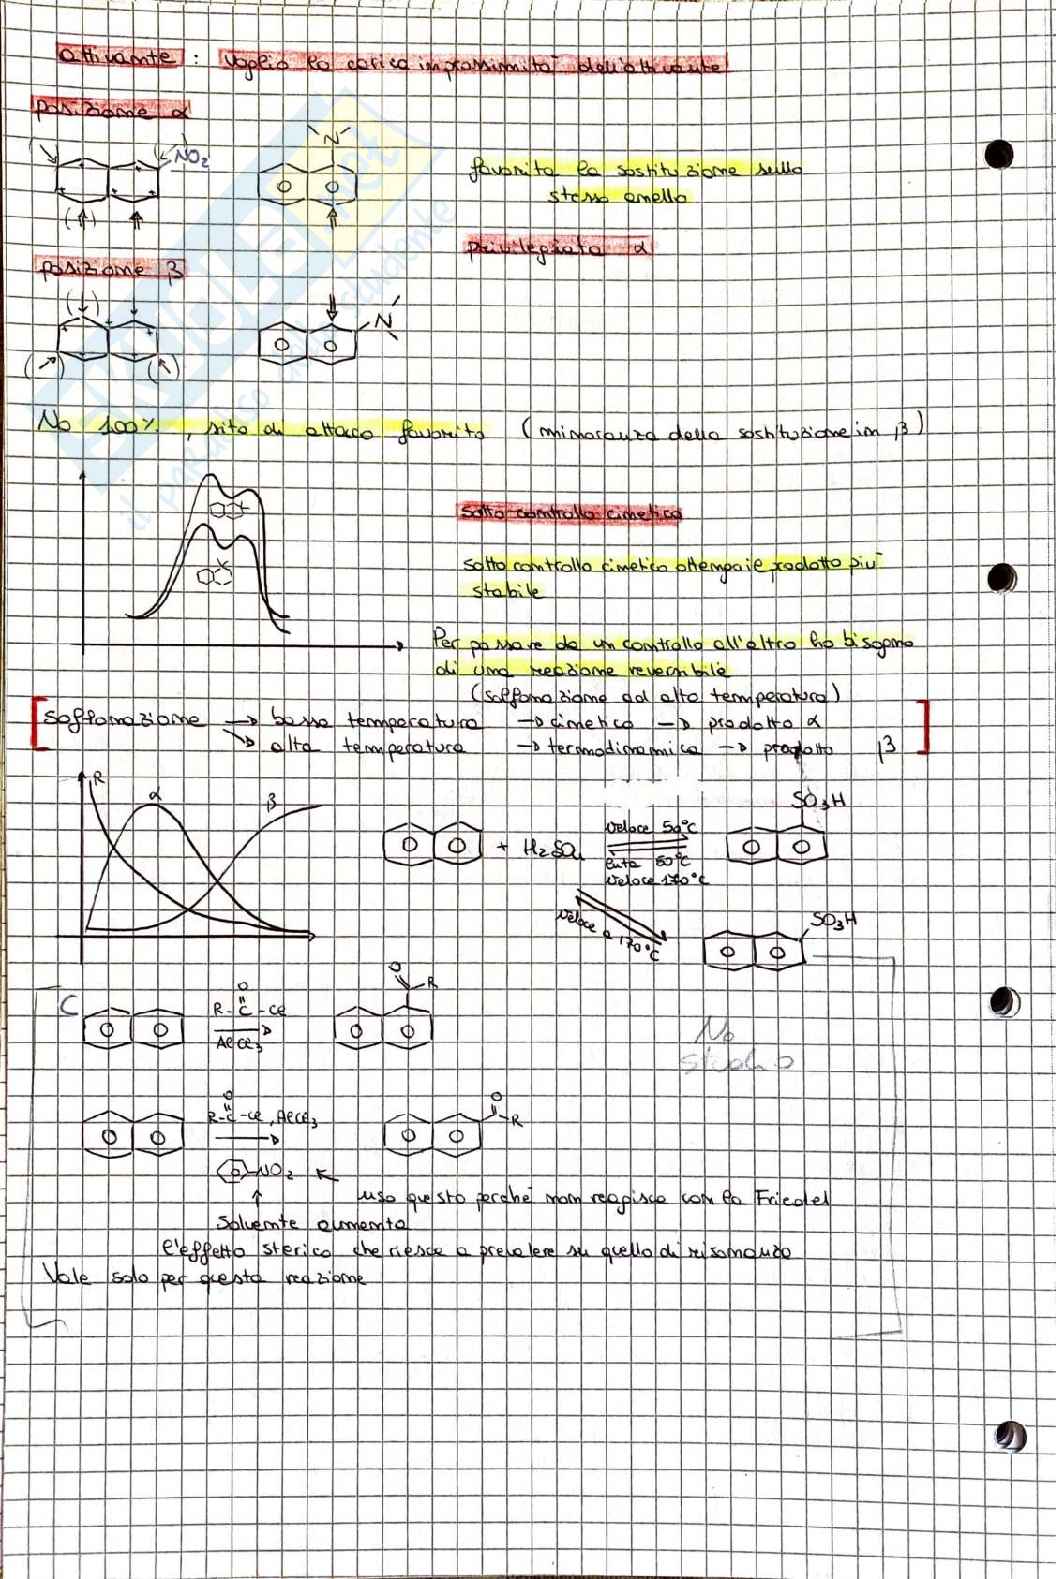 attivante : voglio la carica in prossimità dell'attivante
posizione α
NO2
N
favorita la sostituzione sullo
stesso anello
privilegiata α
posizione β
N
No 100%, sito di attacco favorito (minoranza della sostituzione in β)
sotto controllo cinetico
sotto controllo cinetico ottengo il prodotto più
stabile
Per passare da un controllo all'altro ho bisogno
di una reazione reversibile
(solfonazione ad alta temperatura)
Solfonazione → bassa temperatura → cinetico → prodotto α
↘ alta temperatura → termodinamico → prodotto β
R α β
SO3H
+ H2SO4
Veloce 50°C
lenta 80°C
Veloce 170°C
Veloce a 170°C
SO3H
C
O
R-C-Cl
AlCl3
O
R
No
studio
O
R-C-Cl, AlCl3
O
R
NO2
uso questo perché non reagisce con la Friedel
Solvente aumenta
l'effetto sterico che riesce a prevalere su quello di risonanza
Vale solo per questa reazione